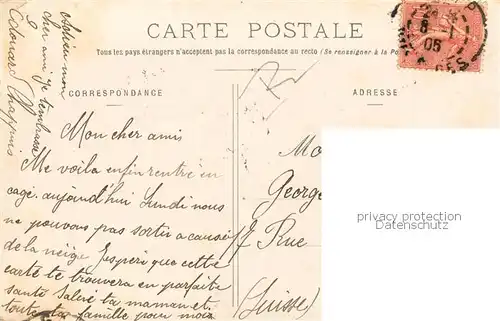 CARTE POSTALE
Tous les pays étrangers n'acceptent pas la correspondance au recto (Se renseigner à la Po
CORRESPONDANCE
ADRESSE
Mon cher amis
Me voila enfin rentré en
cage. aujourd'hui Lundi nous
ne pouvons pas sortir a cause
de la neige J'espère que cette
carte te trouvera en parfaite
santé Salue ta maman et
toute ta famille pour moi
mon
cher ami je t'embrasse
Edouard Chappuis
Mo
George
Rue
(Suisse)
privacy protection
Datenschutz
8-1
05